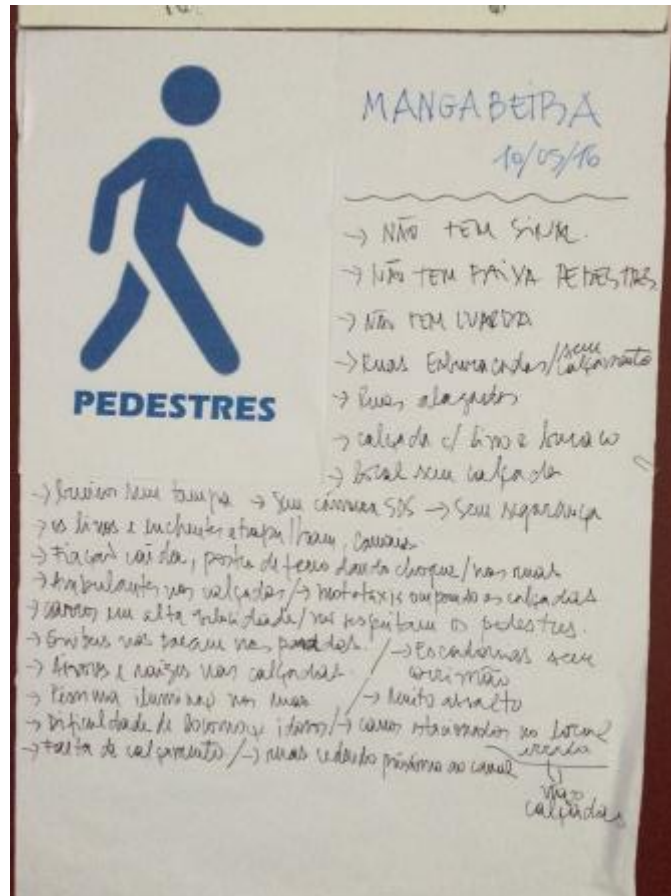 MANGABEIRA
10/05/16
→ NÃO TEM SINAL.
→ NÃO TEM FAIXA PEDESTRES
→ NÃO TEM GUARDA
→ Ruas Esburacadas/sem calçamento
→ Ruas alagadas
→ calçada c/ lixo e buraco
→ local sem calçada
PEDESTRES
→ bueiros sem tampa → Sem câmera SDS → Sem segurança
→ os lixos e enchentes atrapalham, canais
→ Fiação caída, poste de ferro dando choque/nas ruas
→ Ambulantes nas calçadas/→ mototaxis ocupando as calçadas
→ carros em alta velocidade/não respeitam os pedestres.
→ Ônibus não param nas paradas. /→ Escadarias sem corrimão
→ Árvores e raízes nas calçadas.
→ Péssima iluminação nas ruas /→ Muito assalto
→ Dificuldade de idosos/→ carros estacionados no local errado
→ Falta de calçamento/→ ruas cedendo próximo ao canal
calçadas